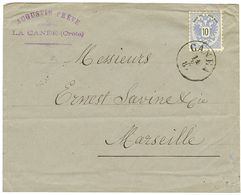 LA CANÉE (Crète)
10
CANEA
Messieurs
Ernest Savine & Cie
Marseille